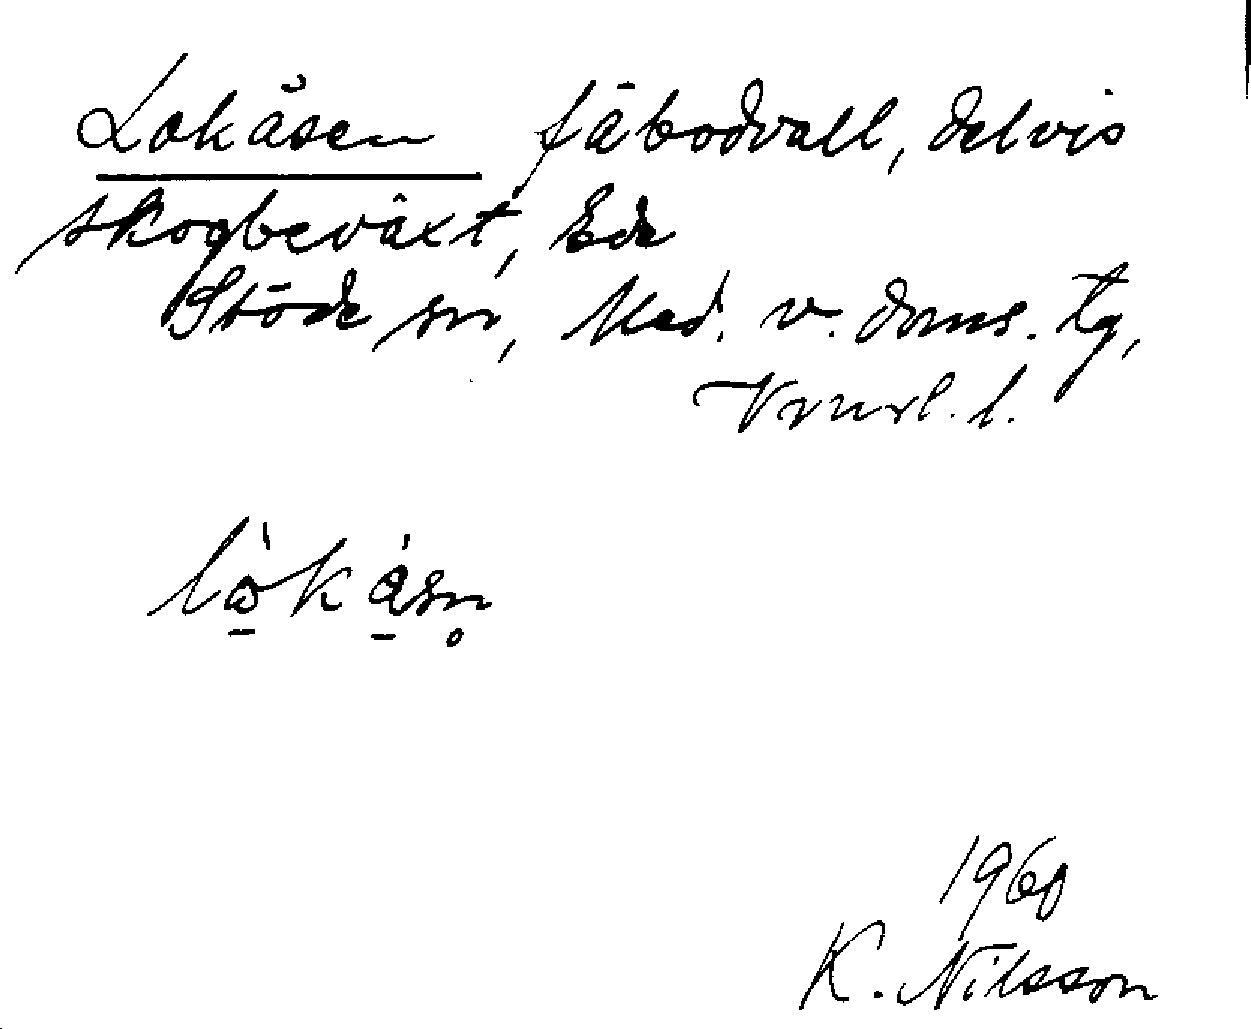 Lokåsen fäbodvall, delvis
skogbeväxt, Ede
Stöde sn, Med. v. doms. tg,
Vrnrl. l.
lò̠k á̠sn̥
1960
K. Nilsson